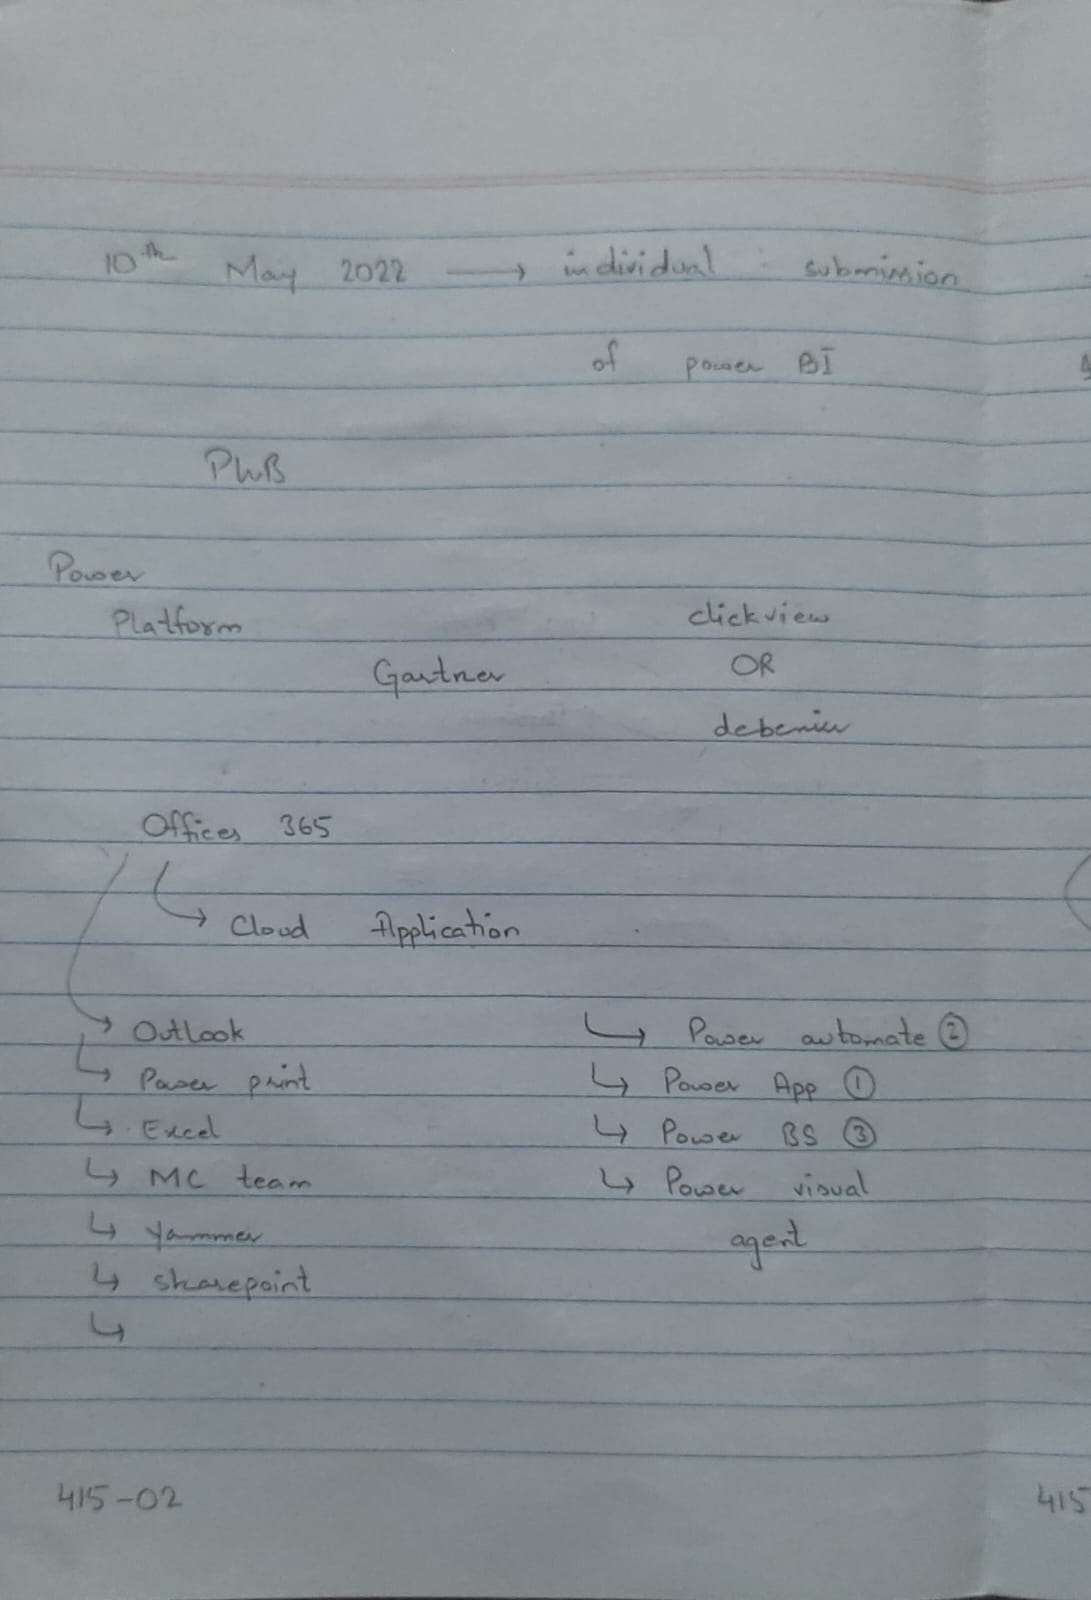 10th May 2022 → individual submission
of power BI
PWB
Power
Platform
clickview
Gartner
OR
Offices 365
↳ Cloud Application
→ Outlook
↳ Power print
↳ Excel
↳ MC team
↳ yammer
↳ sharepoint
↳
↳ Power automate ②
↳ Power App ①
↳ Power BS ③
↳ Power visual
agent
415-02
415